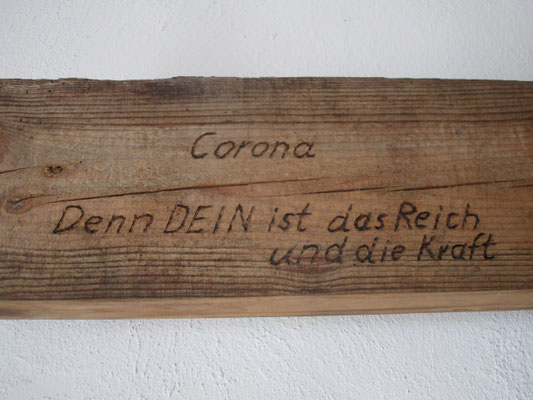 Corona
Denn DEIN ist das Reich
und die Kraft